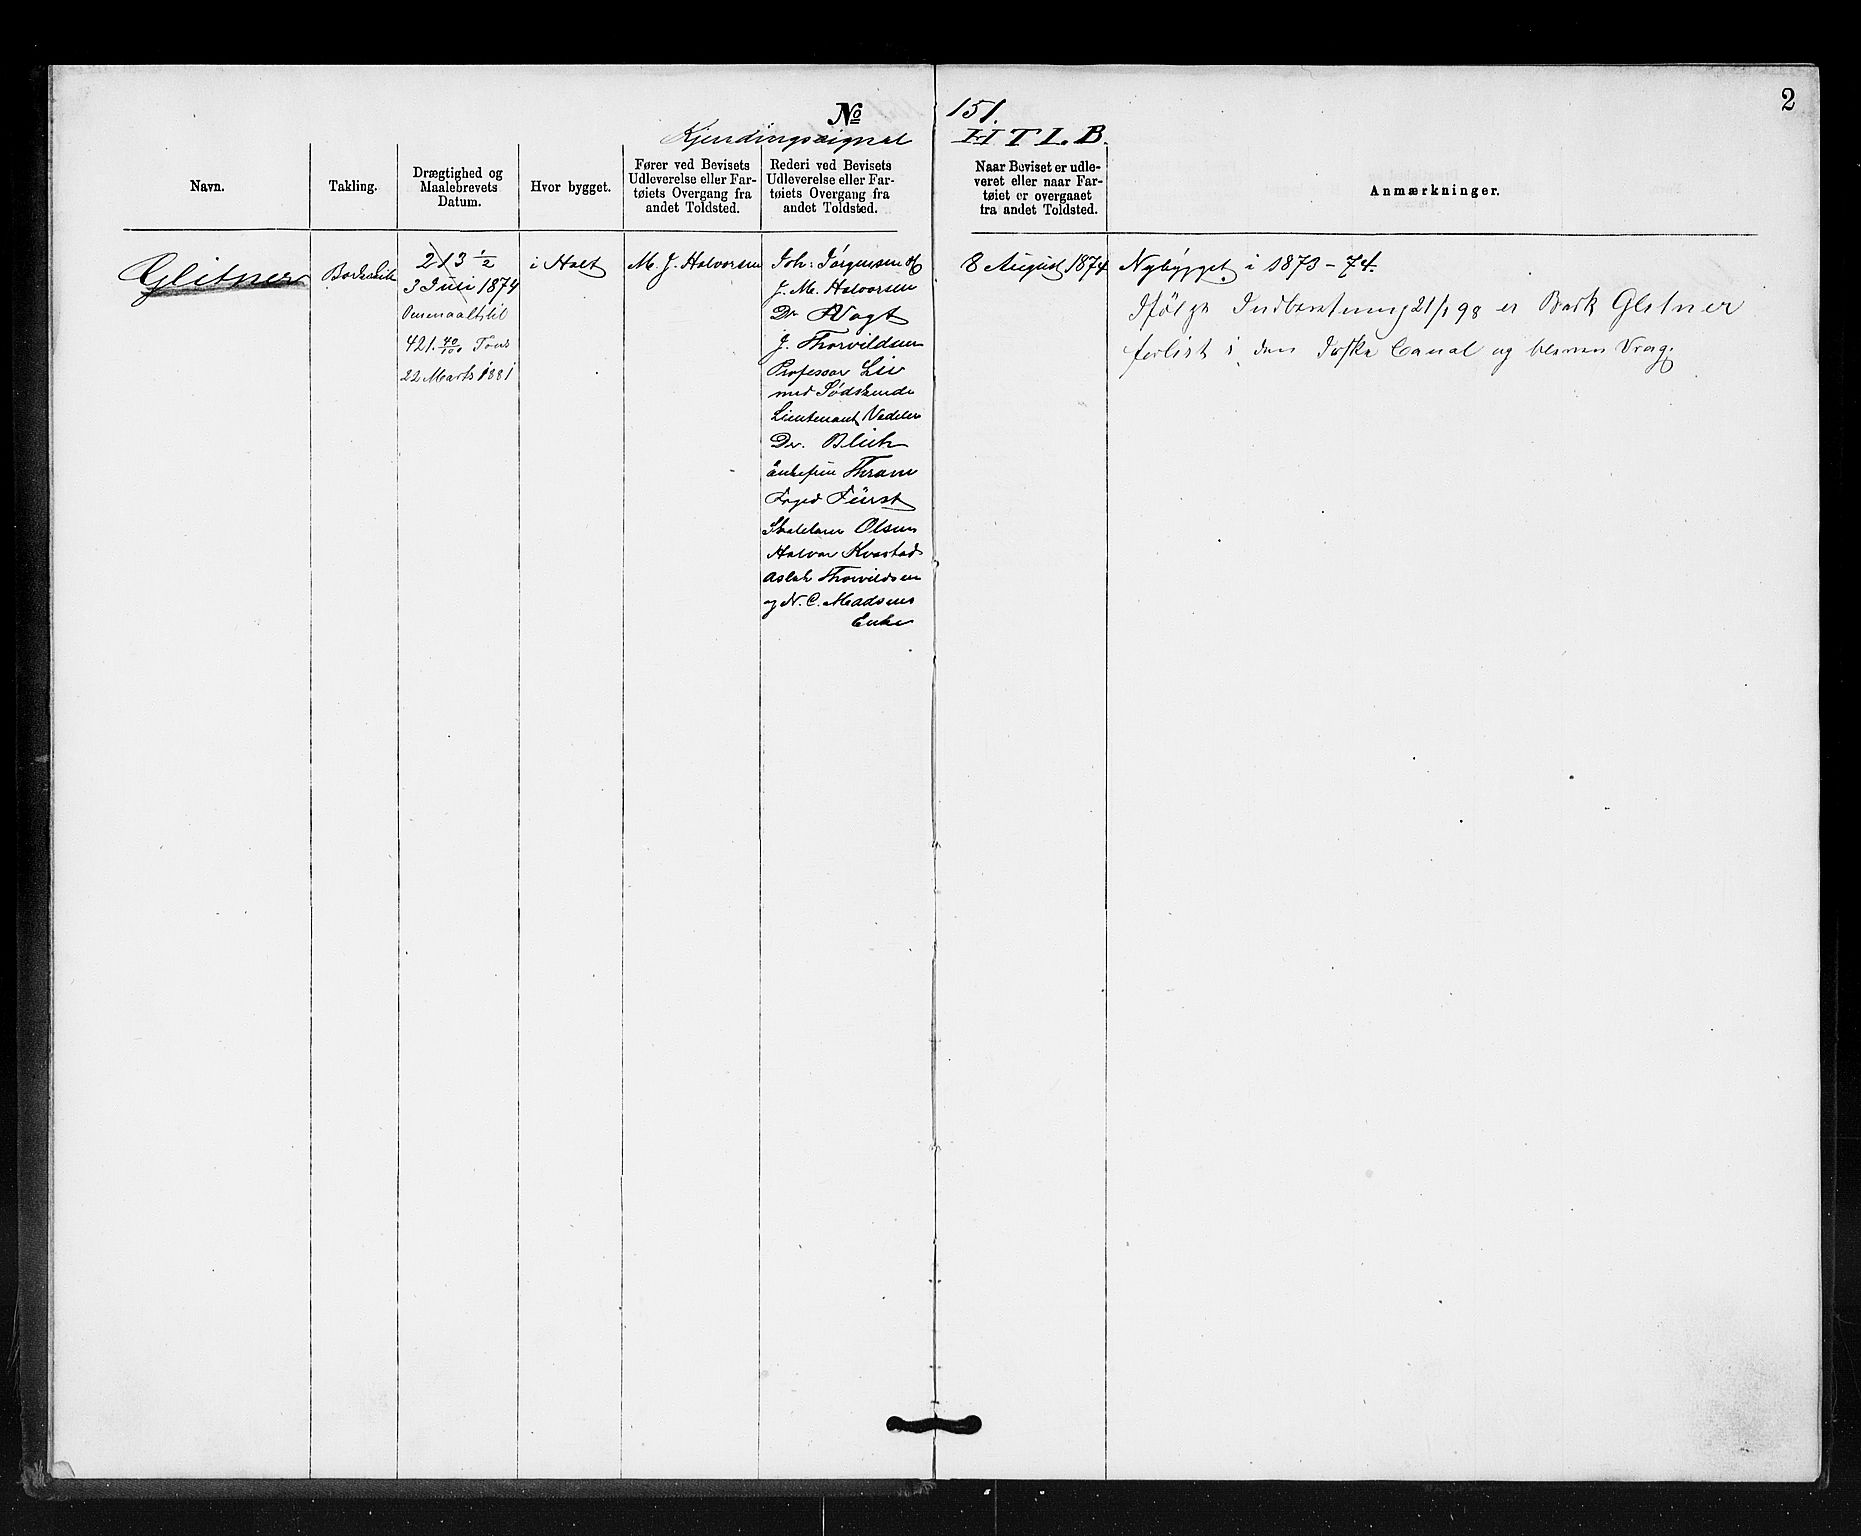 2
No 151.
Kjendingssignal HTLB.
Navn.
Takling.
Drægtighed og
Maalebrevets
Datum.
Hvor bygget.
Fører ved Bevisets
Udleverelse eller Far-
tøiets Overgang fra
andet Toldsted.
Rederi ved Bevisets
Udleverelse eller Far-
tøiets Overgang fra
andet Toldsted.
Naar Beviset er udle-
veret eller naar Far-
tøiet er overgaaet
fra andet Toldsted.
Anmærkninger.
Glitner
Barkskib
213 ½
3 Juli 1874
Ommaalt til
421 40/100 Tons
22 Marts 1881
i Holt
M. J. Halvorsen
Joh: Jørgensen og
J. M. Halvorsen
Dr Vogt
J. Thorvildsen
Professor Lie
med Sødskende
Lieutenant Vedeler
Dr. Blich
Enkefru Thrane
Foged Fürst
Olsen
Halvor Kvastad
Aslak Thorvildsen
og N. C. Madsens
Enke
8 August 1874
Nybygget i 1873-74.
Ifølge Indberetning 21/1 98 er Bark Glitner
forlist i den Canal og bleven Vrag.